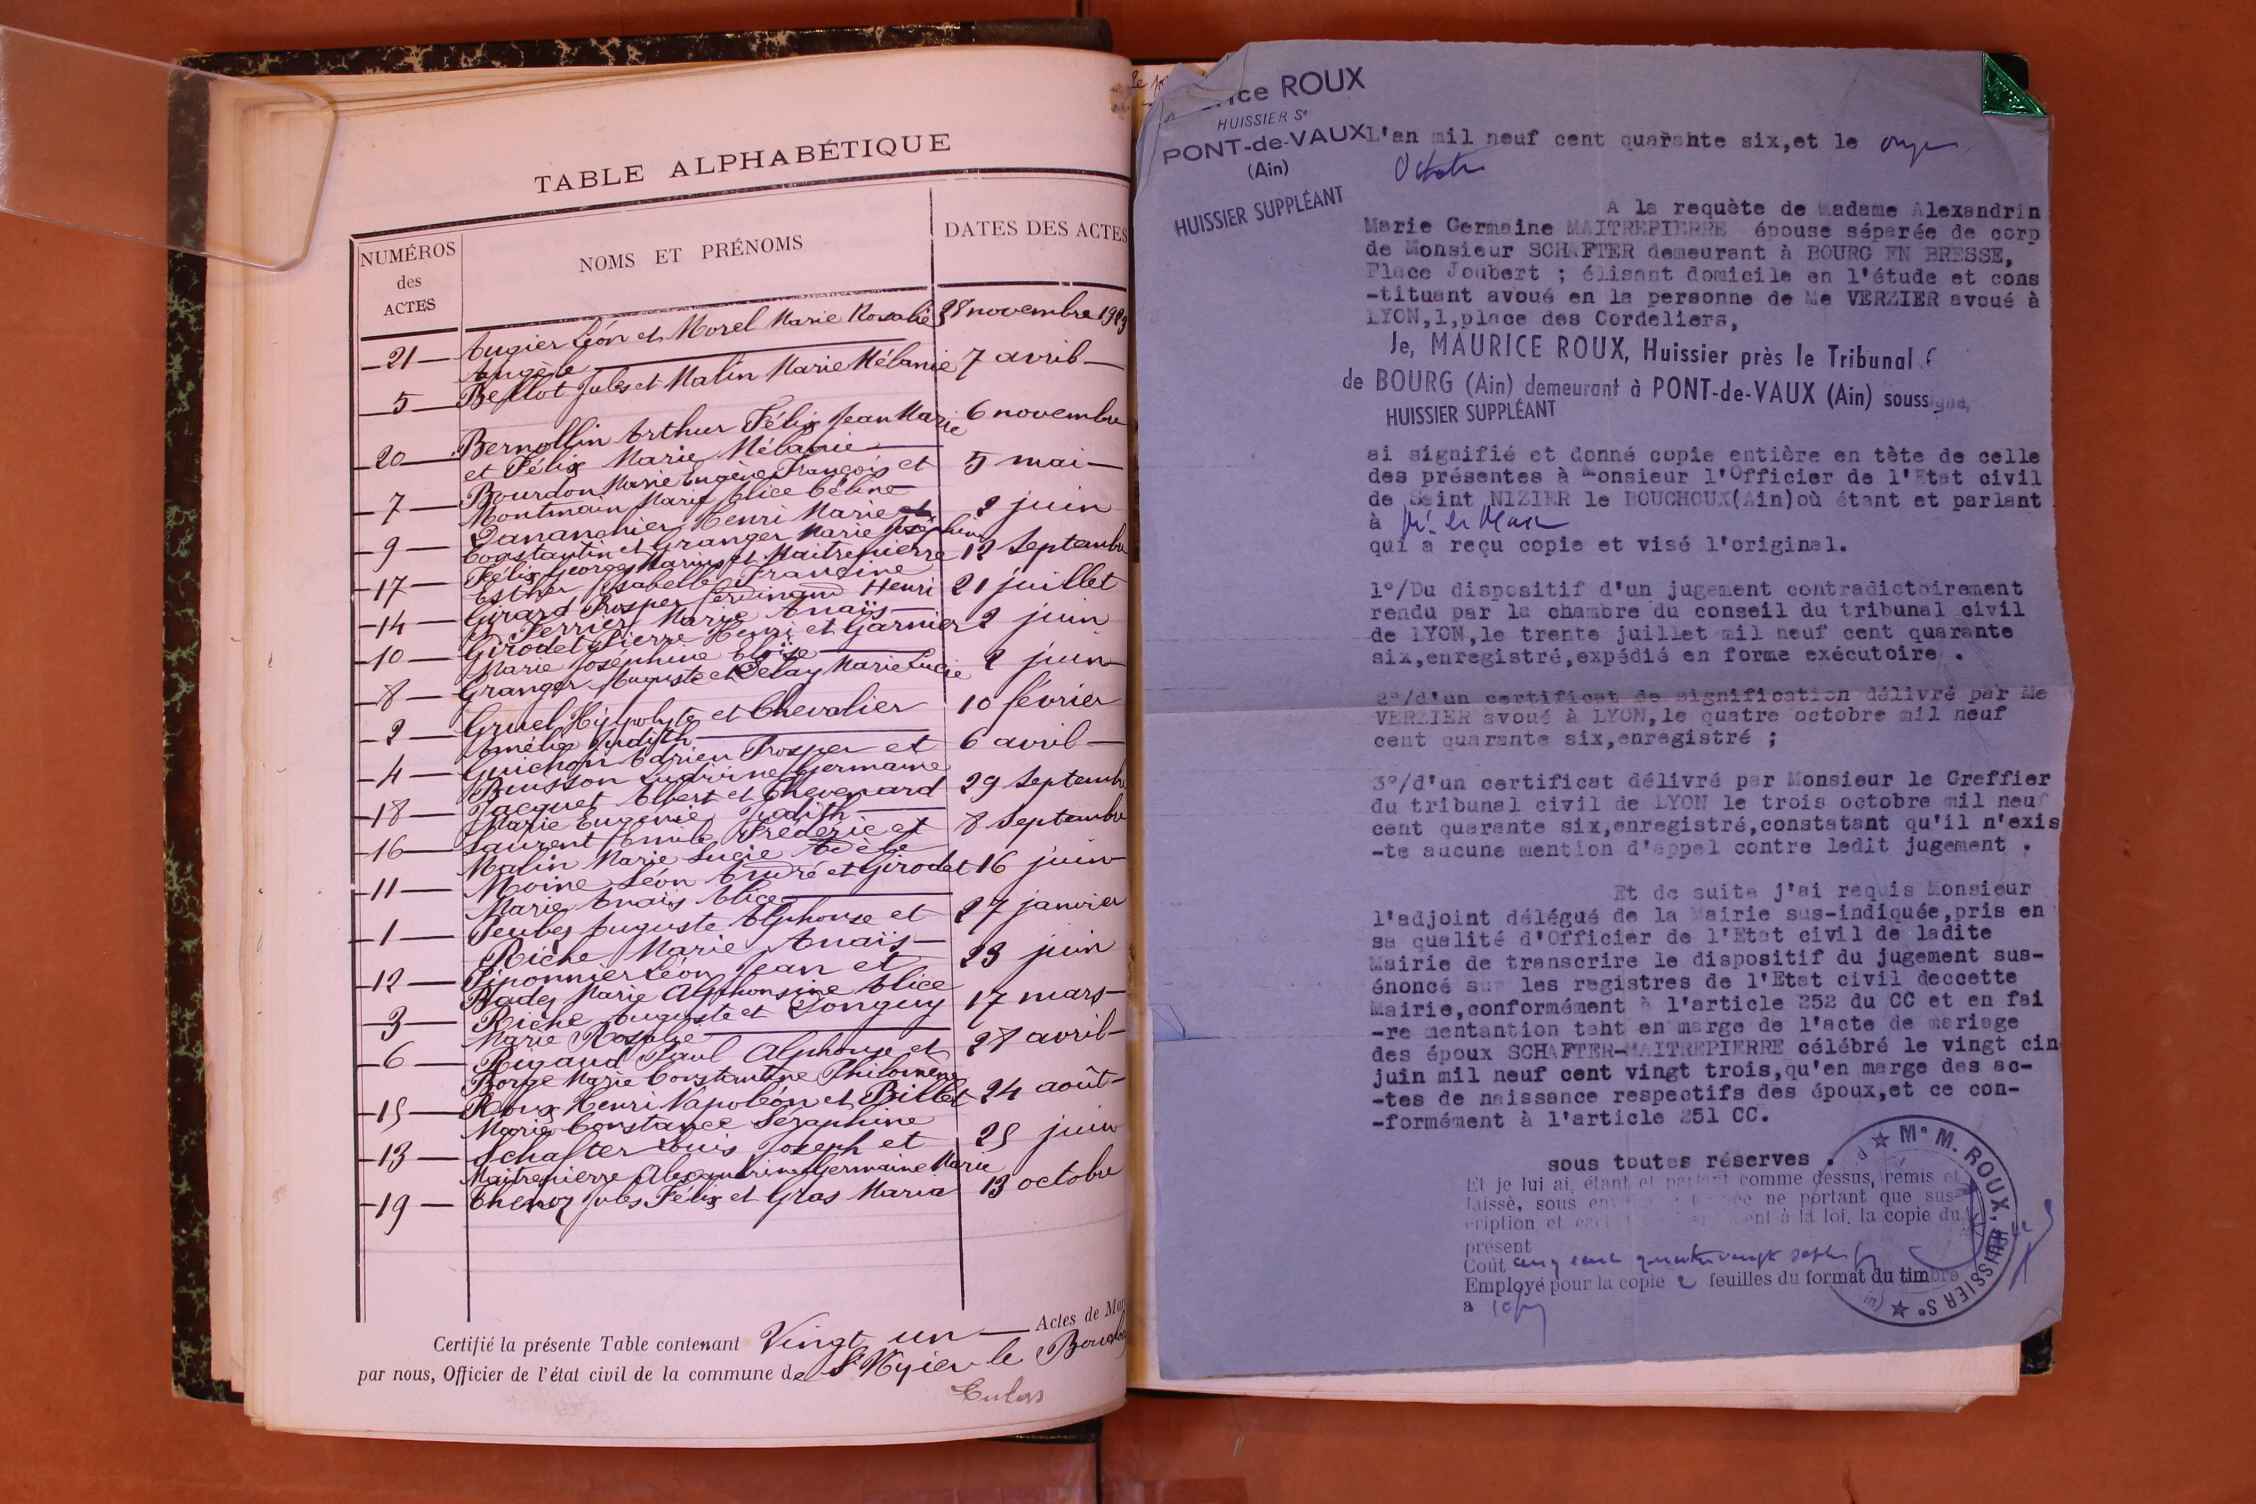 TABLE ALPHABÉTIQUE
NUMÉROS des ACTES
NOMS ET PRÉNOMS
DATES DES ACTES
21 — Augier Léon et Morel Marie Rosalie 28 novembre 1923
Angèle
5 — Bellot Jules et Malin Marie Mélanie 7 avril
20 — Bernollin Arthur Félix Jean Marie 6 novembre
et Félix Marie Mélanie
7 — Bourdon Marie Eugène François et 5 mai
Montmain Marie Alice Céline
9 — Dananchier Henri Marie et 2 juin
Constantin et Granger Marie Joséphine
17 — Félix Georges Marius et Maitrepierre 12 septembre
Esther Isabelle Francine
14 — Girard Prosper Ferdinand Henri 21 juillet
Perrier Marie Anaïs
10 — Girodet Pierre Henri et Garnier 2 juin
Marie Joséphine Eloïse
8 — Granger Auguste et Delay Marie Lucie 2 juin
2 — Gruel Hyppolyte et Chevalier 10 février
Amélie Judith
4 — Guichon Adrien Prosper et 6 avril
Buisson Ludivine Germaine
18 — Jacquet Albert et Thevenard 29 septembre
Marie Eugénie Judith
16 — Laurent Emile Fréderic et 8 septembre
Malin Marie Lucie Adèle
11 — Moine Léon André et Girodet 16 juin
Marie Anaïs Alice
1 — Auguste Alphonse et 27 janvier
Riche Marie Anaïs
12 — Piponnier Léon Jean et 23 juin
Marie Alphonsine Alice
3 — Riche Auguste et Donguy 17 mars
Marie Rosalie
6 — Rigaud Paul Alphonse et 28 avril
Borge Marie Constantine Philomène
15 — Roux Henri Napoléon et Billet 24 août
Marie Constance Séraphine
13 — Schafter Louis Joseph et 25 juin
Maitrepierre Alexandrine Germaine Marie
19 — Thenoz Jules Félix et Gras Maria 13 octobre
Certifié la présente Table contenant Vingt un — Actes de Mar
par nous, Officier de l'état civil de la commune de St Nizier le Bouchoux
ice ROUX
HUISSIER St
PONT-de-VAUX
(Ain)
HUISSIER SUPPLÉANT
L'an mil neuf cent quarante six,et le onze
Octobre
A la requète de Madame Alexandrin
Marie Germaine MAITREPIERRE épouse séparée de corp
de Monsieur SCHAFTER demeurant à BOURG EN BRESSE,
Place Joubert ; élisant domicile en l'étude et cons
-tituant avoué en la personne de Me VERZIER avoué à
LYON,1,place des Cordeliers,
Je, MAURICE ROUX, Huissier près le Tribunal
de BOURG (Ain) demeurant à PONT-de-VAUX (Ain) soussigné,
HUISSIER SUPPLÉANT
ai signifié et donné copie entière en tète de celle
des présentes à Monsieur l'Officier de l'Etat civil
de Saint NIZIER le BOUCHOUX(Ain)où étant et parlant
à
qui a reçu copie et visé l'original.
1°/Du dispositif d'un jugement contradictoirement
rendu par la chambre du conseil du tribunal civil
de LYON,le trente juillet mil neuf cent quarante
six,enregistré,expédié en forme exécutoire .
2°/d'un certificat de signification délivré par Me
VERZIER avoué à LYON,le quatre octobre mil neuf
cent quarante six,enregistré ;
3°/d'un certificat délivré par Monsieur le Greffier
du tribunal civil de LYON le trois octobre mil neuf
cent quarante six,enregistré,constatant qu'il n'exis
-te aucune mention d'appel contre ledit jugement .
Et de suite j'ai requis Monsieur
l'adjoint délégué de la Mairie sus-indiquée,pris en
sa qualité d'Officier de l'Etat civil de ladite
Mairie de transcrire le dispositif du jugement sus-
énoncé sur les registres de l'Etat civil deccette
Mairie,conformément à l'article 252 du CC et en fai
-re mentantion taht en marge de l'acte de mariage
des époux SCHAFTER-MAITREPIERRE célébré le vingt cin
juin mil neuf cent vingt trois,qu'en marge des ac-
-tes de naissance respectifs des époux,et ce con-
-formément à l'article 251 CC.
sous toutes réserves .
Et je lui ai, étant et parlant comme dessus, remis et
laissé, sous ne portant que sus-
cription et à la loi, la copie du
présent
Coût cinq cent quatre vingt sept
Employé pour la copie 2 feuilles du format du timbre
a
Me M. ROUX, HUISSIER St